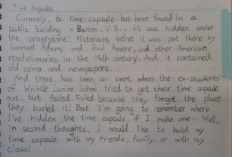 The Capsules
Currently, a time capsule has been found in a
public building in Boston, U.S.. It was hidden under
the cornerstone. Historians believe it was put there by
Samuel Adams and Paul Revere, and other American
revolutionaries in the 18th century. And it contained
old coins and newspapers.
And there has been an event when the ex-students
of Writtle Junior School tried to get their time capsule
out, but failed. Failed because they forgot the place
they buried it! But I'm going to remember where
I've hidden the time capsule, if I make one. Well,
on second thoughts, I would like to build my
time capsule with my friends, family, or with my
class!